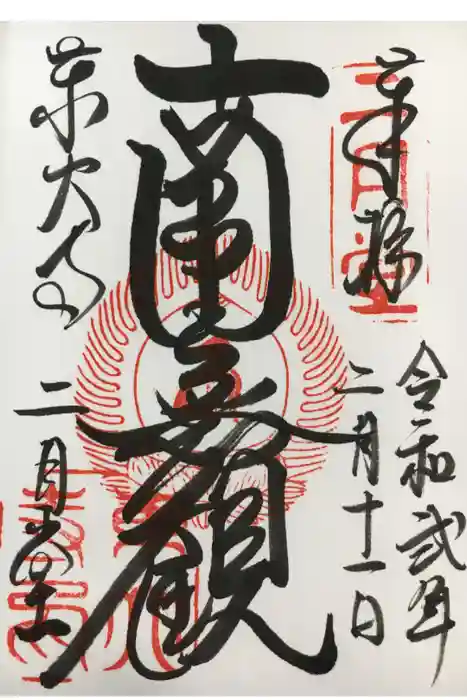 奉拝
二月堂
令和弐年
二月十一日
南無観
東大寺
二月堂